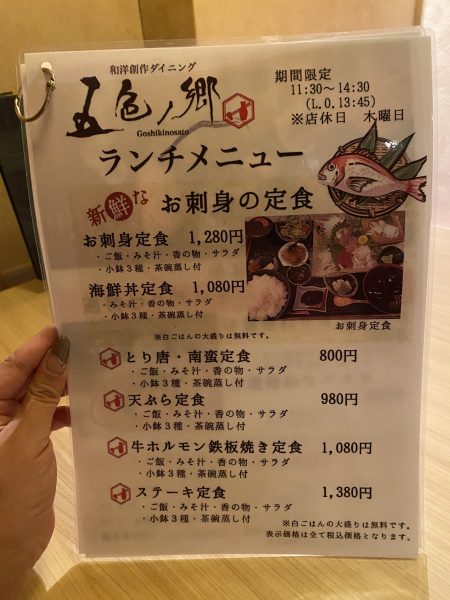 和洋創作ダイニング
五色ノ郷
Goshikinosato
期間限定
11:30～14:30
(L.O.13:45)
※店休日 木曜日
ランチメニュー
新鮮な お刺身の定食
お刺身定食 1,280円
・ご飯・みそ汁・香の物・サラダ
・小鉢3種・茶碗蒸し付
海鮮丼定食 1,080円
・みそ汁・香の物・サラダ
・小鉢3種・茶碗蒸し付
お刺身定食
※白ごはんの大盛りは無料です。
とり唐・南蛮定食 800円
・ご飯・みそ汁・香の物・サラダ
・小鉢3種・茶碗蒸し付
天ぷら定食 980円
・ご飯・みそ汁・香の物・サラダ
・小鉢3種・茶碗蒸し付
牛ホルモン鉄板焼き定食 1,080円
・ご飯・みそ汁・香の物・サラダ
・小鉢3種・茶碗蒸し付
ステーキ定食 1,380円
・ご飯・みそ汁・香の物・サラダ
・小鉢3種・茶碗蒸し付
※白ごはんの大盛りは無料です。
表示価格は全て税込価格となります。